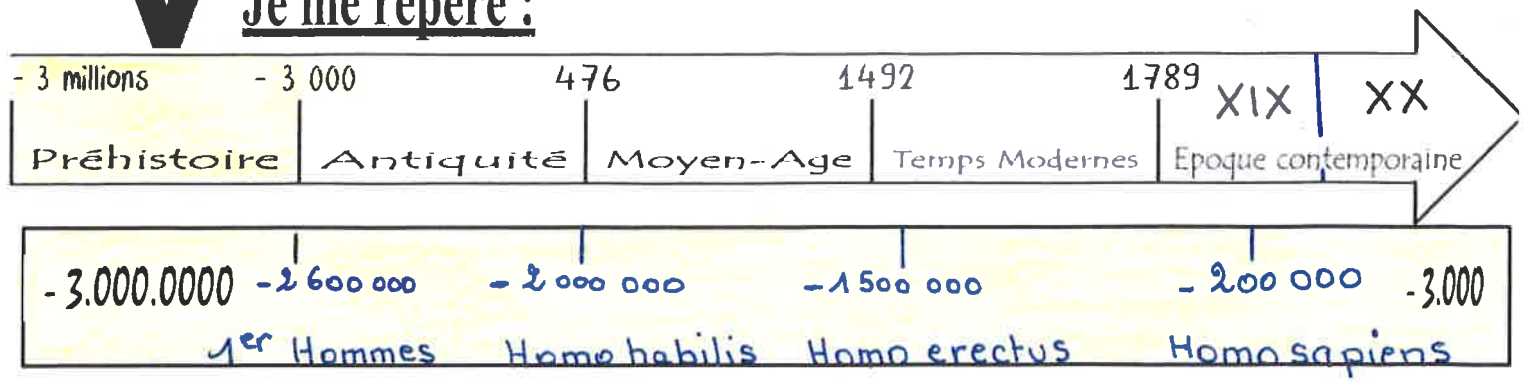 Je me repère :
- 3 millions - 3 000 476 1492 1789 XIX XX
Préhistoire Antiquité Moyen-Age Temps Modernes Epoque contemporaine
- 3.000.0000 - 2 600 000 - 2 000 000 - 1 500 000 - 200 000 - 3.000
1er Hommes Homo habilis Homo erectus Homo sapiens